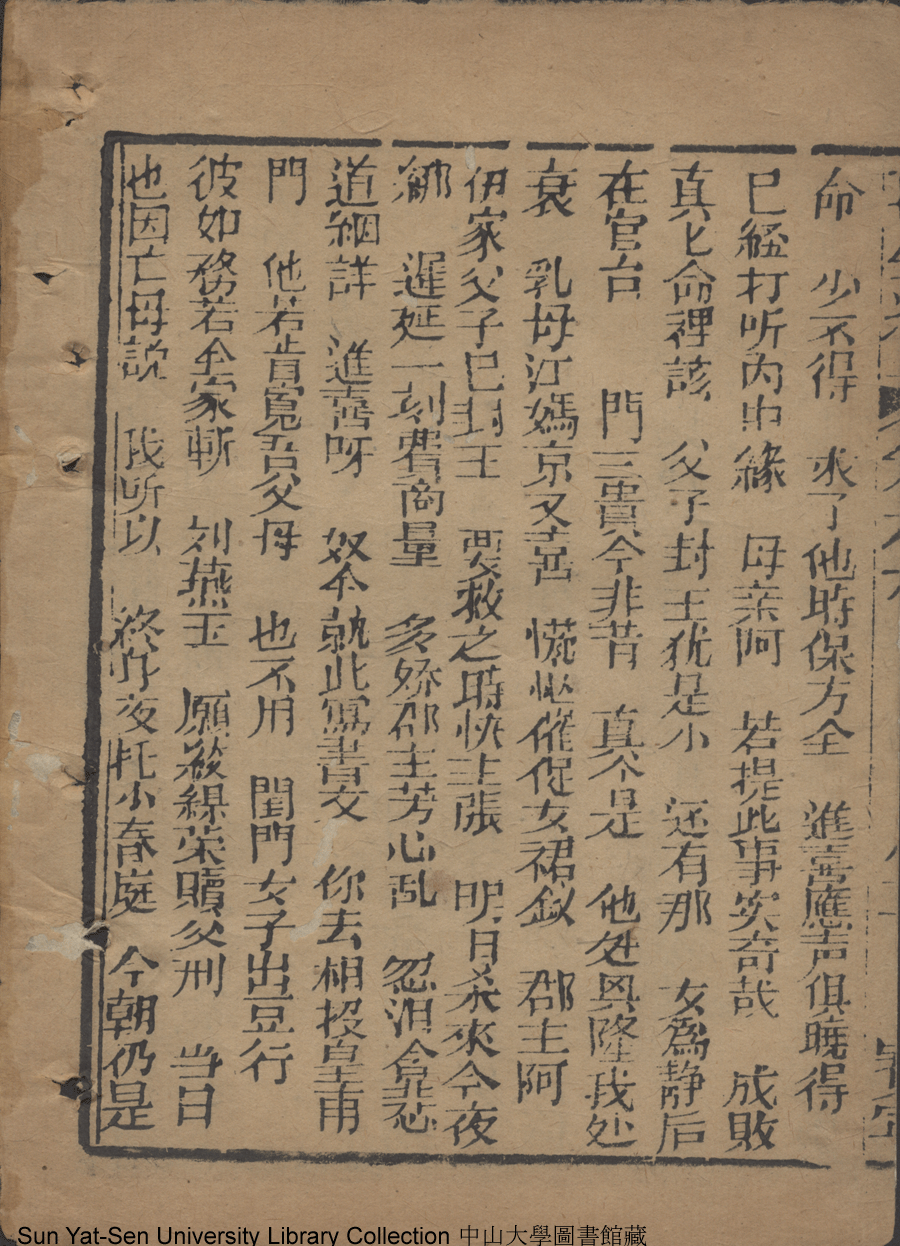 命　少不得　求了他時保方全　進喜應声俱曉得
巳經打听內中緣　母亲阿　若提此事实奇哉　成敗
真匕命裡該　父子封王犹是小　还有那　女為静后
在官台　門三貴今非昔　真个是　他处興隆我处
衰　乳母江媽京又喜　慌忙催促女裙釵　郡主阿
伊家父子巳封王　要救之時快主張　明日杀來今夜
鄉　遲延一刻費商量　多娇郡主芳心乱　忍泪含悲
道細詳　進喜呀　奴今就此寫書文　你去相投皇甫
門　他若肯寬吾父母　也不用　閨門女子出豆行
彼如務若全家斬　刘燕玉　願教緹荣贖父刑　当日
也因亡母説　我所以　終宵夜托小春庭　今朝仍是